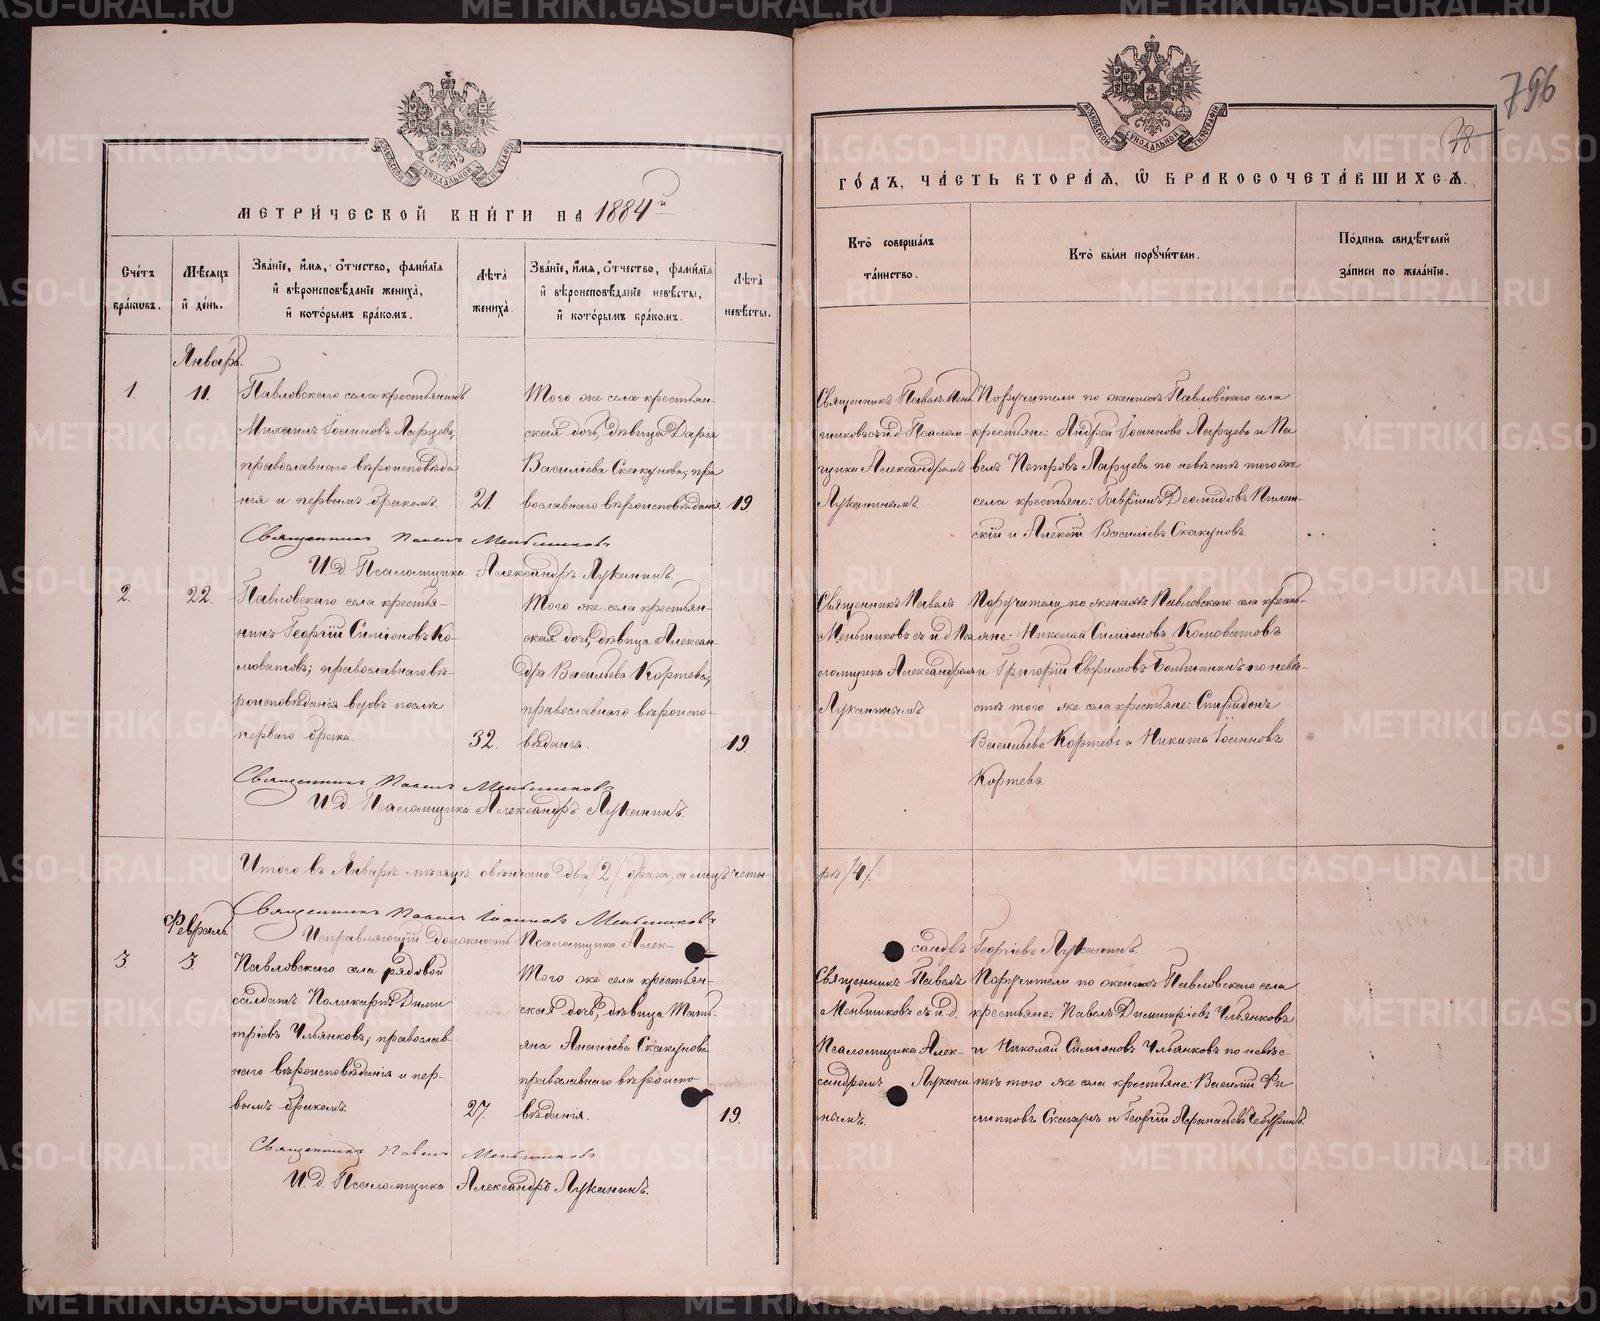 METRIKI.GASO-URAL.RU
796
78
МЕТРИ́ЧЕСКОЙ КНИ́ГИ НА 1884й
ГО́ДЪ, ЧА́СТЬ ВТОРА́Я, Ѡ БРАКОСОЧЕТА́ВШИХСЯ.
Сче́тъ бра́ковъ.
Мѣ́сяцъ и де́нь.
Зва́нїе, и́мя, о́тчество, фами́лїя
и вѣроисповѣ́данїе жениха̀,
и кото́рымъ бра́комъ.
Лѣ̀та жениха̀
Зва́нїе, и́мя, о́тчество, фами́лїя
и вѣроисповѣ́данїе невѣ́сты,
и кото́рымъ бра́комъ.
Лѣ̀та невѣ́сты.
Кто̀ соверша́лъ
та́инство.
Кто̀ бы́ли поручи́тели.
По́дпись свидѣ́телей
за́писи по жела́нїю.
Январь.
1.
11.
Павловскаго села крестьянинъ
Михаилъ Іоанновъ Ларцевъ,
православнаго вѣроисповѣда
нія и первымъ бракомъ.
21.
Того же села крестьян-
ская дочь, дѣвица Дарія
Василіева Скакунова, пра
вославнаго вѣроисповѣданія.
19
Священникъ Павелъ Мень
шиковъ съ и.д. Псалом-
щика Александромъ
Луканинымъ.
Поручители по женихѣ Павловскаго села
крестьяне: Андрей Іоанновъ Ларцевъ и Па
велъ Петровъ Ларцевъ по невѣстѣ того же
села крестьяне: Гавріилъ Деомидовъ
скій и Алексій Василіевъ Скакуновъ.
Священникъ Павелъ Меньшиковъ
И.д. Псаломщика Александръ Луканинъ.
2.
22.
Павловскаго села крестья-
нинъ Георгій Симіоновъ Ко-
моватовъ; православнаго вѣ-
роисповѣданія вдовъ послѣ
перваго брака.
32.
Того же села крестьян-
ская дочь, дѣвица Алексан-
дра Васильева Кортева,
православнаго вѣроиспо-
вѣданія.
19.
Священникъ Павелъ
Меньшиковъ съ и.д Пса
ломщика Александромъ
Луканинымъ.
Поручители по женихѣ Павловскаго села кресть-
яне: Николай Симіоновъ Комоватовъ
и Григорій Евфимовъ Большанинъ по невѣ-
стѣ того же села крестьяне: Спиридонъ
Васильевъ Кортевъ и Никита Іоанновъ
Кортевъ.
Священникъ Павелъ Меньшиковъ
И.д. Псаломщика Александръ Луканинъ.
Итого въ Январѣ мѣсяцѣ овѣнчано два /2/ брака, а лицъ четы-
ре /4/.
Священникъ Павелъ Іоанновъ Меньшиковъ
Исправляющій должность Псаломщика Алек-
сандръ Георгіевъ Луканинъ.
Февраль.
3.
3.
Павловскаго села рядовой
солдатъ Поликарпъ Дими
тріевъ Ульянковъ; православ-
наго вѣроисповѣданія и пер-
вымъ бракомъ.
27.
Того же села крестьян-
ская дочь, дѣвица Тать-
яна Ананіева Скакунова
православнаго вѣроиспо
вѣданія.
19.
Священникъ Павелъ
Меньшиковъ съ и.д.
Псаломщика Алек-
сандромъ Лукани
нымъ.
Поручители по женихѣ Павловскаго села
крестьяне: Павелъ Димитріевъ Ульянковъ
и Николай Симіоновъ Ульянковъ по невѣс-
тѣ того же села крестьяне: Василій Фи
липповъ Скакунъ и Георгій Афанасіевъ
Священникъ Павелъ Меньшиковъ
И.д. Псаломщика Александръ Луканинъ.